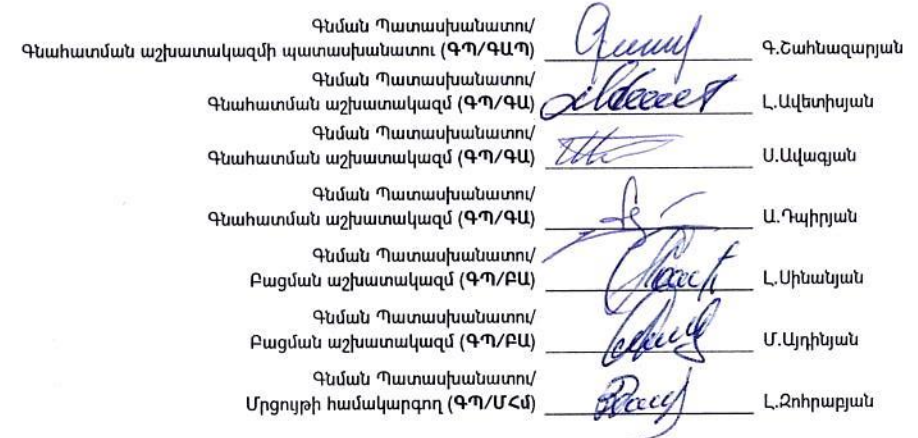 Գնման Պատասխանատու/
Գնահատման աշխատակազմի պատասխանատու (ԳՊ/ԳԱՊ) Գ.Շահնազարյան
Գնման Պատասխանատու/
Գնահատման աշխատակազմ (ԳՊ/ԳԱ) Լ.Ավետիսյան
Գնման Պատասխանատու/
Գնահատման աշխատակազմ (ԳՊ/ԳԱ) Ս.Ավագյան
Գնման Պատասխանատու/
Գնահատման աշխատակազմ (ԳՊ/ԳԱ) Ա.Դպիրյան
Գնման Պատասխանատու/
Բացման աշխատակազմ (ԳՊ/ԲԱ) Լ.Սինանյան
Գնման Պատասխանատու/
Բացման աշխատակազմ (ԳՊ/ԲԱ) Մ.Այդինյան
Գնման Պատասխանատու/
Մրցույթի համակարգող (ԳՊ/ՄՀմ) Լ.Զոհրաբյան